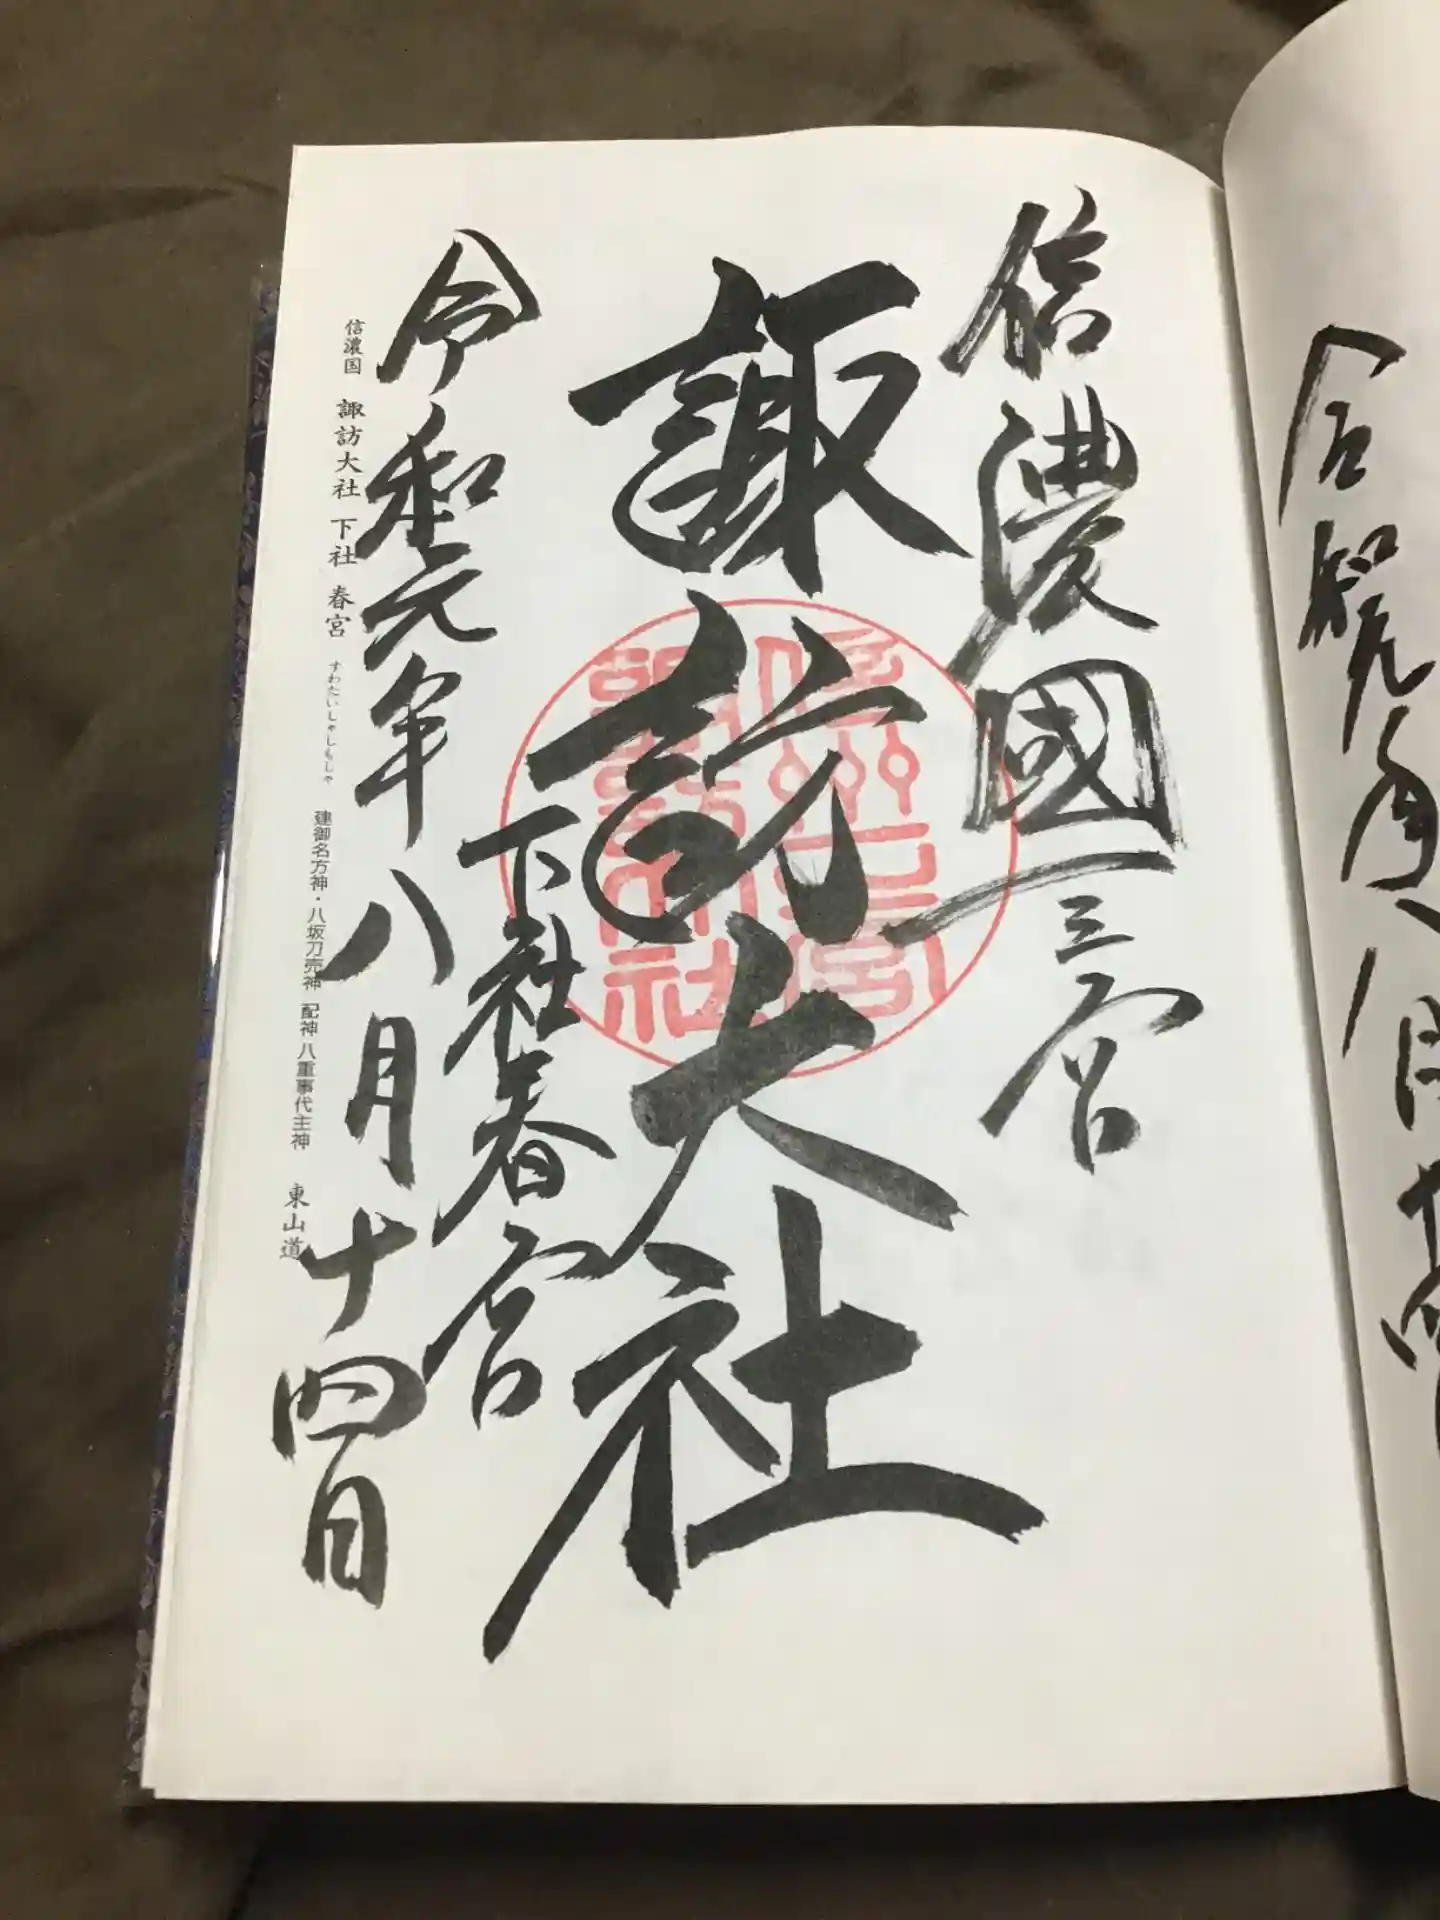 信濃國一宮
諏訪大社
下社春宮
令和元年八月十四日
信濃国 諏訪大社 下社 春宮 すわたいしゃしもしゃ 建御名方神・八坂刀売神 配神 八重事代主神 東山道
令和元年八月十四